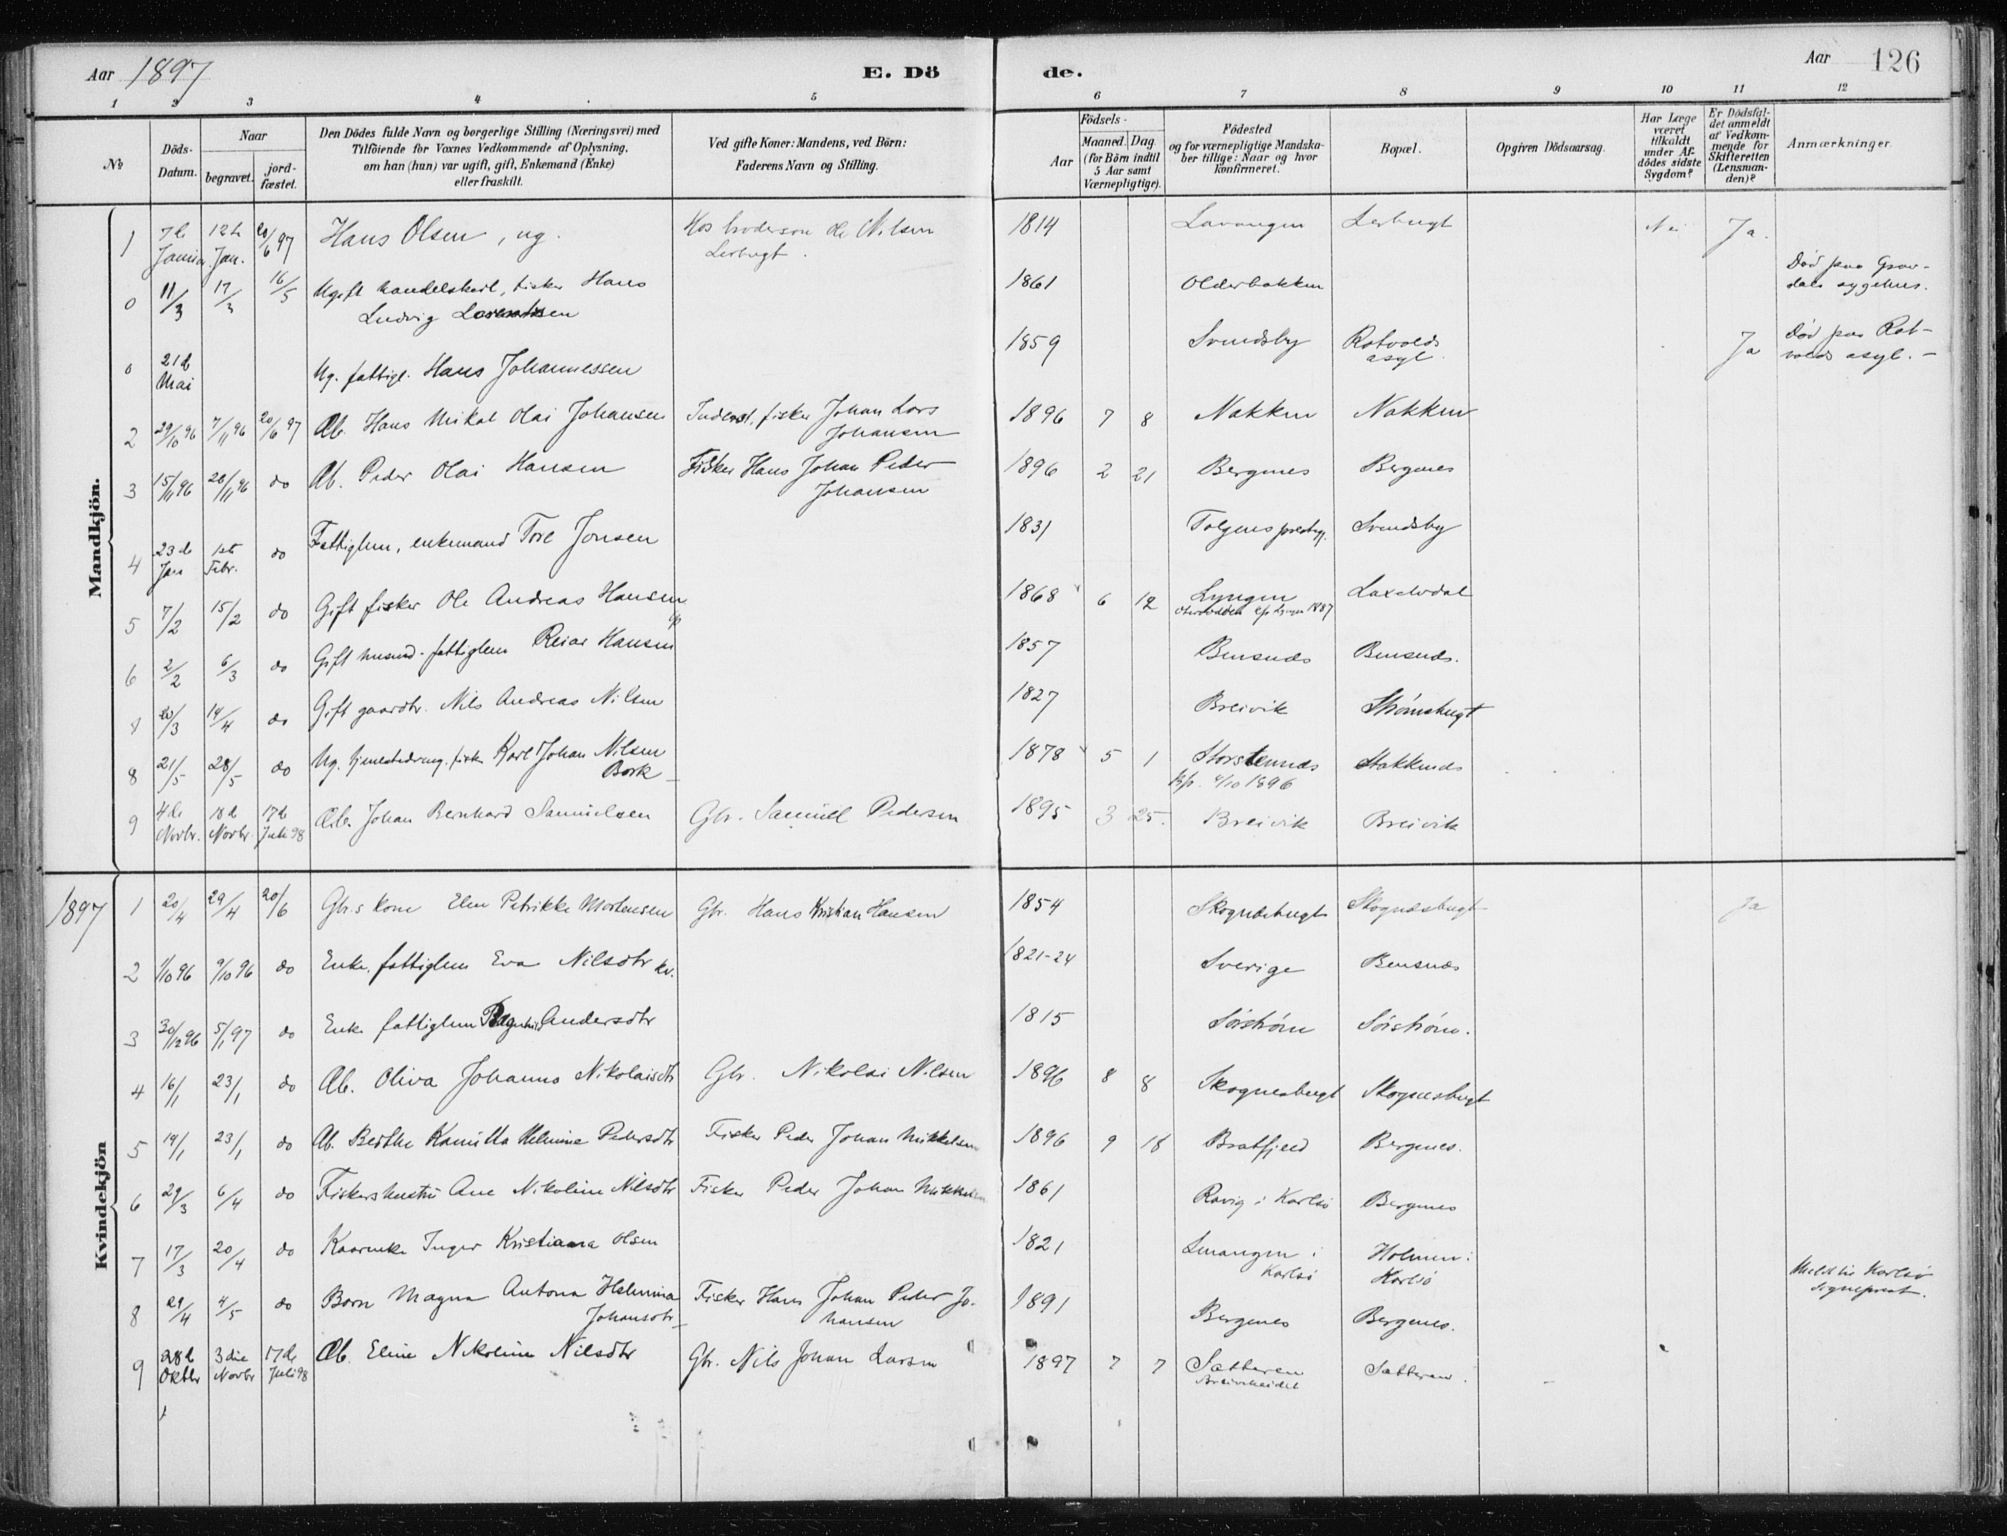 Aar 1897 E. Dö de. Aar 126
1 2 3 4 5 6 7 8 9 10 11 12
No
Döds-Datum.
Naar
begravet.
jord-fæstet.
Den Dödes fulde Navn og borgerlige Stilling (Næringsvei) med
Tilföiende for Voxnes Vedkommende af Oplysning,
om han (hun) var ugift, gift, Enkemand (Enke)
eller fraskilt.
Ved gifte Koner: Mandens, ved Börn:
Faderens Navn og Stilling.
Födsels-
Aar
Maaned. Dag.
(for Börn indtil
5 Aar samt
Værnepligtige).
Födested
og for værnepligtige Mandska-
ber tillige: Naar og hvor
konfirmeret.
Bopæl.
Opgiven Dödsaarsag.
Har Læge
været
tilkaldt
under Af-
dödes sidste
Sygdom?
Er Dödsfal-
det anmeldt
af Vedkom-
mende for
Skifteretten
(Lensman-
den)?
Anmærkninger.
Mandkjön.
1 7de Januar 12te Jan. 20/6 97 Hans Olsen, ug. Hos brodersøn Ole Nilsen 1814 Lavangen Lerbugt Nei Ja.
Lerbugt.
0 11/3 17/3 16/5 Ugift handelskarl, fisker Hans 1861 Olderbakken Död paa Grav-
Ludvig Lorentsen dals sygehus.
0 21de Mai Ug. fattigl. Hans Johannessen 1859 Svendsby Rotvolds asyl. Ja Död paa Rot-
volds asyl. –
2 29/10 96 7/11 96 20/6 97 Æb. Hans Mikal Olai Johansen Inderst, fisker Johan Lars 1896 7 8 Nakken Nakken
Johansen
3 15/11 96 28/11 96 do Æb. Peder Olai Hansen Fisker Hans Johan Peder 1896 2 21 Bergnes Bergnes
Johansen
4 23de Jan 1ste Febr. do Fattiglem, enkemand Tore Jonsen 1831 Tolgens prestegj. Svendsby
5 7/2 15/2 do Gift fisker Ole Andreas Hansen 1868 6 12 Lyngen Laxelvdal
1887
6 2/2 6/3 do Gift husmd. fattiglem Reiar Hansen 1857 Bensnes Bensnes.
20/3 14/4 do Gift gaardbr. Nils Andreas Nilsen 1827 Breivik Strömsbugt
8 21/5 28/5 do Ug. tjenestedreng, fisker Karl Johan Nilsen 1878 5 1 Storstennes Stakkenes
Bork 4/10 1896
9 4de Novbr. 18de Novbr 17de Juli 98 Æb. Johan Bernhard Samuelsen Gbr. Samuel Pedersen 1895 3 25. Breivik Breivik
1897
Kvindekjön
1 20/4 29/4 20/6 Gbr.s kone Elen Petrikke Mortensen Gbr. Hans Kristian Hansen 1854 Skognesbugt Skognesbugt Ja
2 1/10 96 9/10 96 do Enke, fattiglem Eva Nilsdtr kv. 1821-24 Sverige Bensnes
3 30/12 96 5/1 97 do Enke fattiglem Ragnhild Andersdtr 1815 Sörström Sörström.
4 16/1 23/1 do Æb. Oliva Johanna Nikolaisdtr Gbr. Nikolai Nilsen 1896 8 8 Skognesbugt Skognesbugt
5 14/1 23/1 do Æb. Berthe Kamilla Helmine Pedersdtr Fisker Peder Johan Mikkelsen 1896 9 18 Bratfjeld Bergnes.
6 29/3 6/4 do Fiskershustru Ane Nikoline Nilsdtr Fisker Peder Johan Mikkelsen 1861 Ravig i Karlsö Bergnes
7 17/3 20/4 do Kaarenke Inger Kristiana Olsen 1821 i Karlsö Holmen i Karlsö Meldt til Karlsö
Sogneprest.
8 29/4 4/5 do Barn Magna Antona Helmina Fisker Hans Johan Peder Jo- 1891 Bergnes Bergnes.
Johansdtr hansen
9 28de Oktbr 3die Novbr 17de Juli 98 Æb. Eline Nikoline Nilsdtr Gbr. Nils Johan Larsen 1897 7 7 Sætteren Sætteren.
Breivikeidet